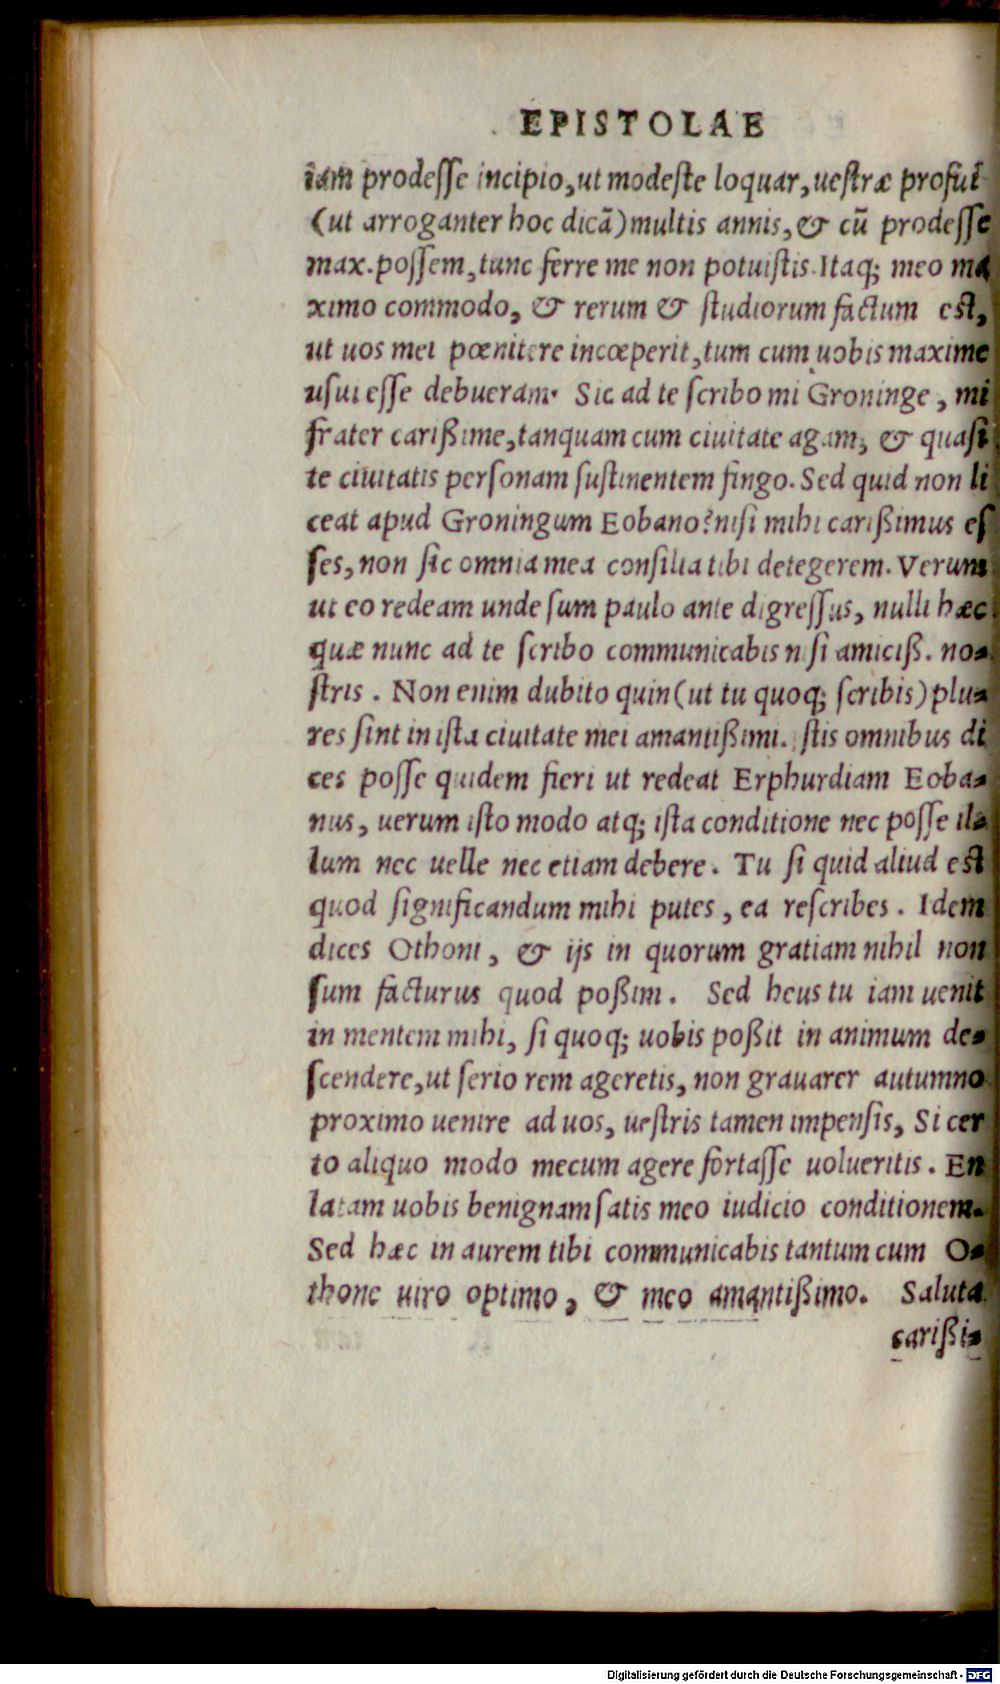 EPISTOLAE
iam prodesse incipio, ut modeste loquar, uestræ profui
(ut arroganter hoc dicā) multis annis, & cū prodesse
max. possem, tunc ferre me non potuistis. Itaq; meo ma
ximo commodo, & rerum & studiorum factum est,
ut uos mei pœnitere incœperit, tum cum uobis maxime
usui esse debueram. Sic ad te scribo mi Groninge, mi
frater carißime, tanquam cum ciuitate agam, & quasi
te ciuitatis personam sustinentem fingo. Sed quid non li
ceat apud Groningum Eobano? nisi mihi carißimus es
ses, non sic omnia mea consilia tibi detegerem. Verum
ut eo redeam unde sum paulo ante digressus, nulli hæc
quæ nunc ad te scribo communicabis nisi amiciß. no-
stris. Non enim dubito quin (ut tu quoq; scribis) plu-
res sint in ista ciuitate mei amantißimi. stis omnibus di
ces posse quidem fieri ut redeat Erphurdiam Eoba-
nus, uerum isto modo atq; ista conditione nec posse il-
lum nec uelle nec etiam debere. Tu si quid aliud est
quod significandum mihi putes, ea rescribes. Idem
dices Othoni, & ijs in quorum gratiam nihil non
sum facturus quod poßim. Sed heus tu iam uenit
in mentem mihi, si quoq; uobis poßit in animum de-
scendere, ut serio rem ageretis, non grauarer autumno
proximo uenire ad uos, uestris tamen impensis, Si cer
to aliquo modo mecum agere fortasse uolueritis. En
latam uobis benignam satis meo iudicio conditionem.
Sed hæc in aurem tibi communicabis tantum cum O-
thone uiro optimo, & meo amantißimo. Saluta
carißi-
Digitalisierung gefördert durch die Deutsche Forschungsgemeinschaft - DFG